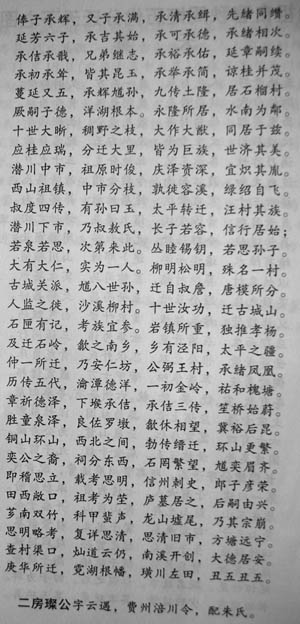 俸子承辉，又子承满，承清承缉，先绪同缵。
延芳六子，承吉其始，承可承德，承绪相次。
承佶承戬，兄弟继志，承裕承佑，延章嗣续。
承初承耸，皆其昆玉，承举承简，谅桂并茂。
蔓延又五，承辉尴孙，九传土隆，居石榴村。
厥嗣子德，洋湖根本。永隆所居，水南为邻。
十世大昕，稠野之枝，大作大猷，同居于兹。
应桂应瑞，分迁大里，皆为巨族，世济其美。
潜川中市，祖原时俊，庆泽资深，宜炽其胤。
西山祖镇，中市分枝，敦徙容溪，绿绍自飞。
叔度四传，有孙曰玉，太平转迁，汪村其族。
潜川下市，乃叔敖氏，长子若容，信行居始；
若泉若思，次第来此。丛睦锡钥，若思孙子。
大有大仁，实为一人。柳明松明，珠名一村。
古城关派，尴八世孙，迁自叔詹，唐模所分。
人监之徙，沙溪柳村。十世汝功，迁古城山。
石匣有记，考族宜参。岩镇所重，独推孝杨。
及迁石岭，歙之南乡，乡有泾阳，太平之疆。
仲一所迁，乃安仁坊，公弼王村，承绪凤凰。
历传五代，瀹潭德洋，一初金岭，祐和槐塘。
章祈德泽，下堨承佶，承佶三传，笙桥始蔚。
胜童泉泽，良佐罗墩，歙休相望，冀裕后昆。
铜山环山，西北之间，勃传缙迁，环山更繁。
奕公之裔，祠分东西，石罔繁望，尴奕眉齐。
即稽思立，裁考思明，信州刺史，郎子彦荣。
田西敞口，祖考为茔，庐墓居之，后嗣由兴。
芗南双竹，科甲蜚声，龙山墟尾，乃其宗崩。
思明略考，复详思清，思清旧市，方塘远宁。
查村渠口，灿道云仍，南溪开创，大德居安。
庚华所迁，霓湖根幡，璜川左田，丑五丑五。
二房璨公字云遇，费州涪川令，配朱氏。